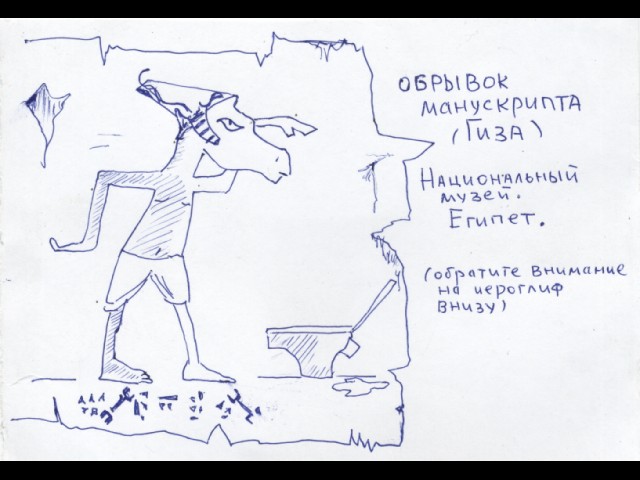 ОБРЫВОК
МАНУСКРИПТА
(ГИЗА)
НАЦИОНАЛЬНЫЙ
МУЗЕЙ.
ЕГИПЕТ.
(обратите внимание
на иероглиф
внизу)